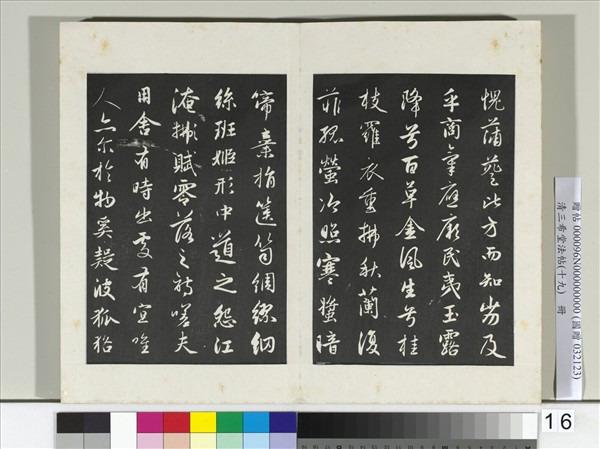 愧蒲葵比方而知劣及
乎商氣應序民夷玉露
降兮百草金風生兮桂
枝羅衣重拂秋蘭復
菲孤螢冷照寒螿暗
啼棄捐篋笥綢繆網
絲班姬形中道之怨江
淹掞賦零落之詩嗟夫
用舍有時出處有宜唯
人亦尔於物奚疑彼狐狢
贈帖 000096N000000000 (國贈 032123)
清三希堂法帖(十九) 冊
16